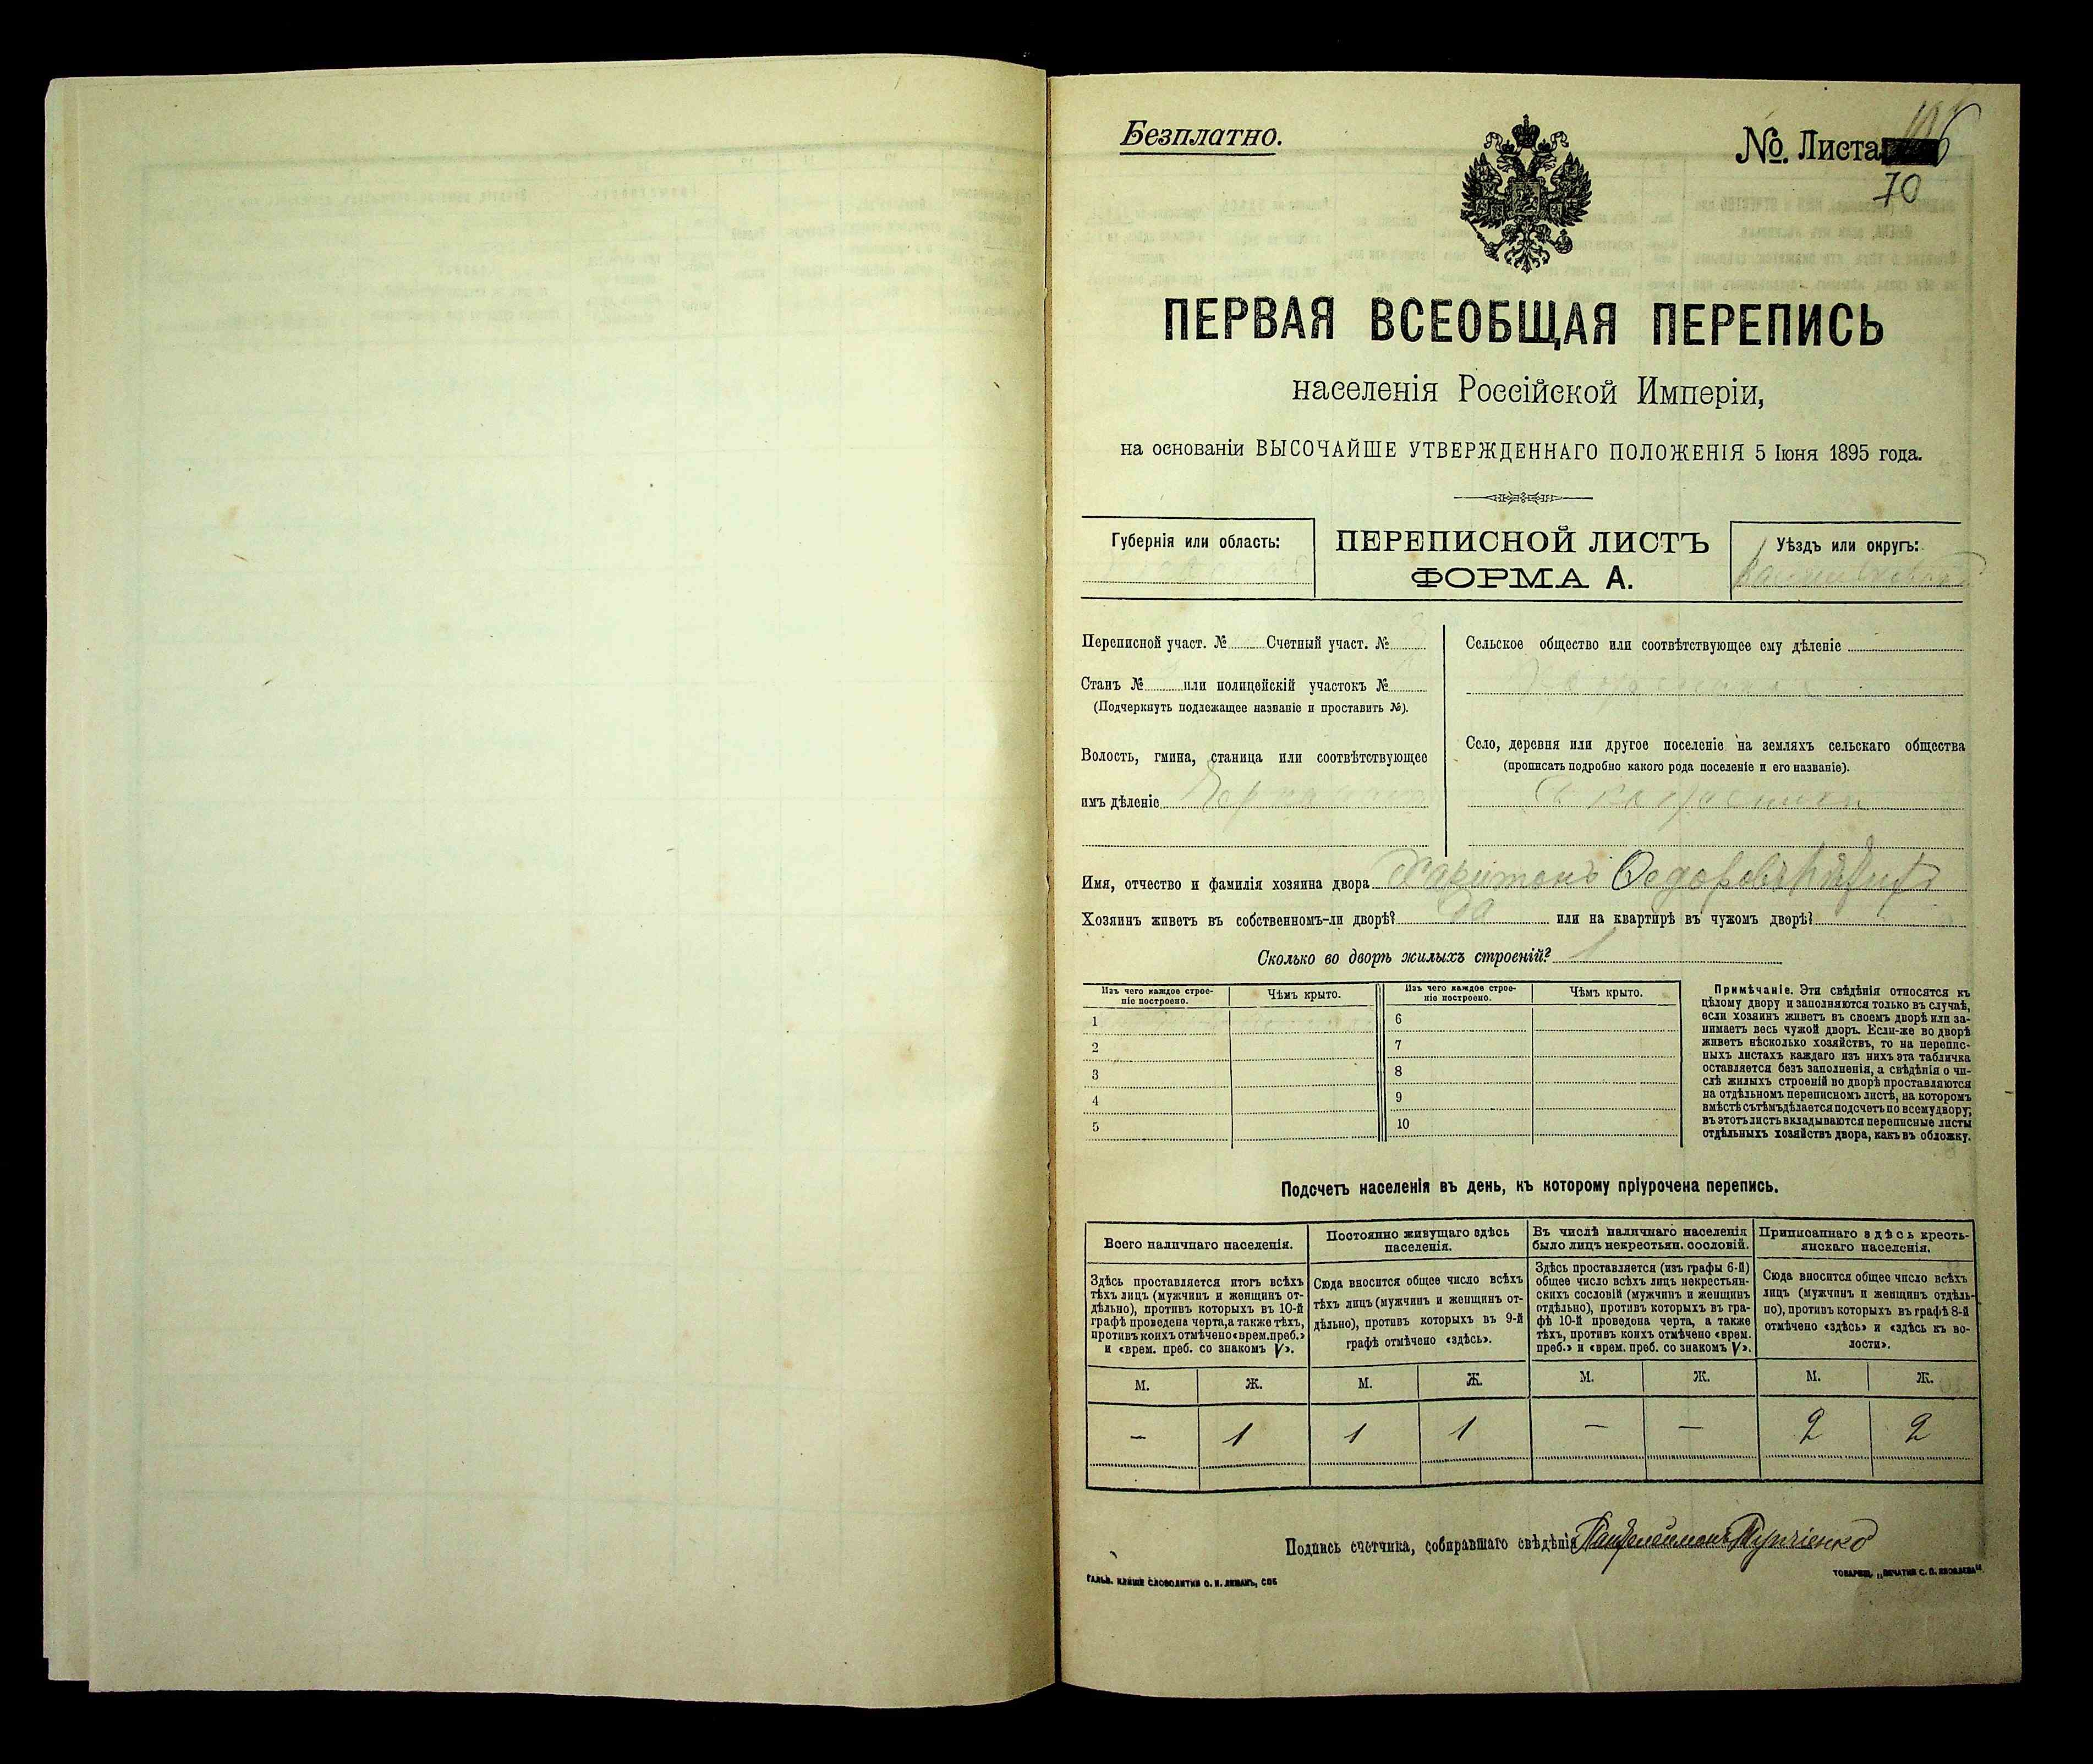 Безплатно.
№. Листа
70
ПЕРВАЯ ВСЕОБЩАЯ ПЕРЕПИСЬ
населенія Россійской Имперіи,
на основаніи ВЫСОЧАЙШЕ УТВЕРЖДЕННАГО ПОЛОЖЕНІЯ 5 Іюня 1895 года.
Губернія или область:
ПЕРЕПИСНОЙ ЛИСТЪ
ФОРМА А.
Уѣздъ или округъ:
Переписной участ. № Счетный участ. №
Станъ № или полицейскій участокъ №
(Подчеркнуть подлежащее названіе и проставить №).
Волость, гмина, станица или соотвѣтствующее
имъ дѣленіе
Сельское общество или соотвѣтствующее ему дѣленіе
Село, деревня или другое поселеніе на земляхъ сельскаго общества
(прописать подробно какого рода поселеніе и его названіе).
Имя, отчество и фамилія хозяина двора Харитонъ Федоровъ
Хозяинъ живетъ въ собственномъ-ли дворѣ? да или на квартирѣ въ чужомъ дворѣ?
Сколько во дворѣ жилыхъ строеній? 1
Изъ чего каждое строе-
ніе построено.
Чѣмъ крыто.
Изъ чего каждое строе-
ніе построено.
Чѣмъ крыто.
1
2
3
4
5
6
7
8
9
10
Примѣчаніе. Эти свѣдѣнія относятся къ
цѣлому двору и заполняются только въ случаѣ,
если хозяинъ живетъ въ своемъ дворѣ или за-
нимаетъ весь чужой дворъ. Если-же во дворѣ
живетъ нѣсколько хозяйствъ, то на перепис-
ныхъ листахъ каждаго изъ нихъ эта табличка
оставляется безъ заполненія, а свѣдѣнія о чи-
слѣ жилыхъ строеній во дворѣ проставляются
на отдѣльномъ переписномъ листѣ, на которомъ
вмѣстѣ съ тѣмъ дѣлается подсчетъ по всему двору;
въ этотъ листъ вкладываются переписные листы
отдѣльныхъ хозяйствъ двора, какъ въ обложку.
Подсчетъ населенія въ день, къ которому пріурочена перепись.
Всего наличнаго населенія.
Здѣсь проставляется итогъ всѣхъ
тѣхъ лицъ (мужчинъ и женщинъ от-
дѣльно), противъ которыхъ въ 10-й
графѣ проведена черта, а также тѣхъ,
противъ коихъ отмѣчено «врем. преб.»
и «врем. преб. со знакомъ V».
Постоянно живущаго здѣсь
населенія.
Сюда вносится общее число всѣхъ
тѣхъ лицъ (мужчинъ и женщинъ от-
дѣльно), противъ которыхъ въ 9-й
графѣ отмѣчено «здѣсь».
Въ числѣ наличнаго населенія
было лицъ некрестьян. сословій.
Здѣсь проставляется (изъ графы 6-й)
общее число всѣхъ лицъ некрестьян-
скихъ сословій (мужчинъ и женщинъ
отдѣльно), противъ которыхъ въ гра-
фѣ 10-й проведена черта, а также
тѣхъ, противъ коихъ отмѣчено «врем.
преб.» и «врем. преб. со знакомъ V».
Приписаннаго здѣсь кресть-
янскаго населенія.
Сюда вносится общее число всѣхъ
лицъ (мужчинъ и женщинъ отдѣль-
но), противъ которыхъ въ графѣ 8-й
отмѣчено «здѣсь» и «здѣсь къ во-
лости».
М. Ж. М. Ж. М. Ж. М. Ж.
— 1 1 1 — — 2 2
Подпись счетчика, собиравшаго свѣдѣнія Пантелеимонъ
ГАЛЬВ. КЛИШЕ СЛОВОЛИТНИ О. И. ЛЕМАНЪ, СПБ
ТОВАРИЩ. „ПЕЧАТНЯ С. П. ЯКОВЛЕВА“.